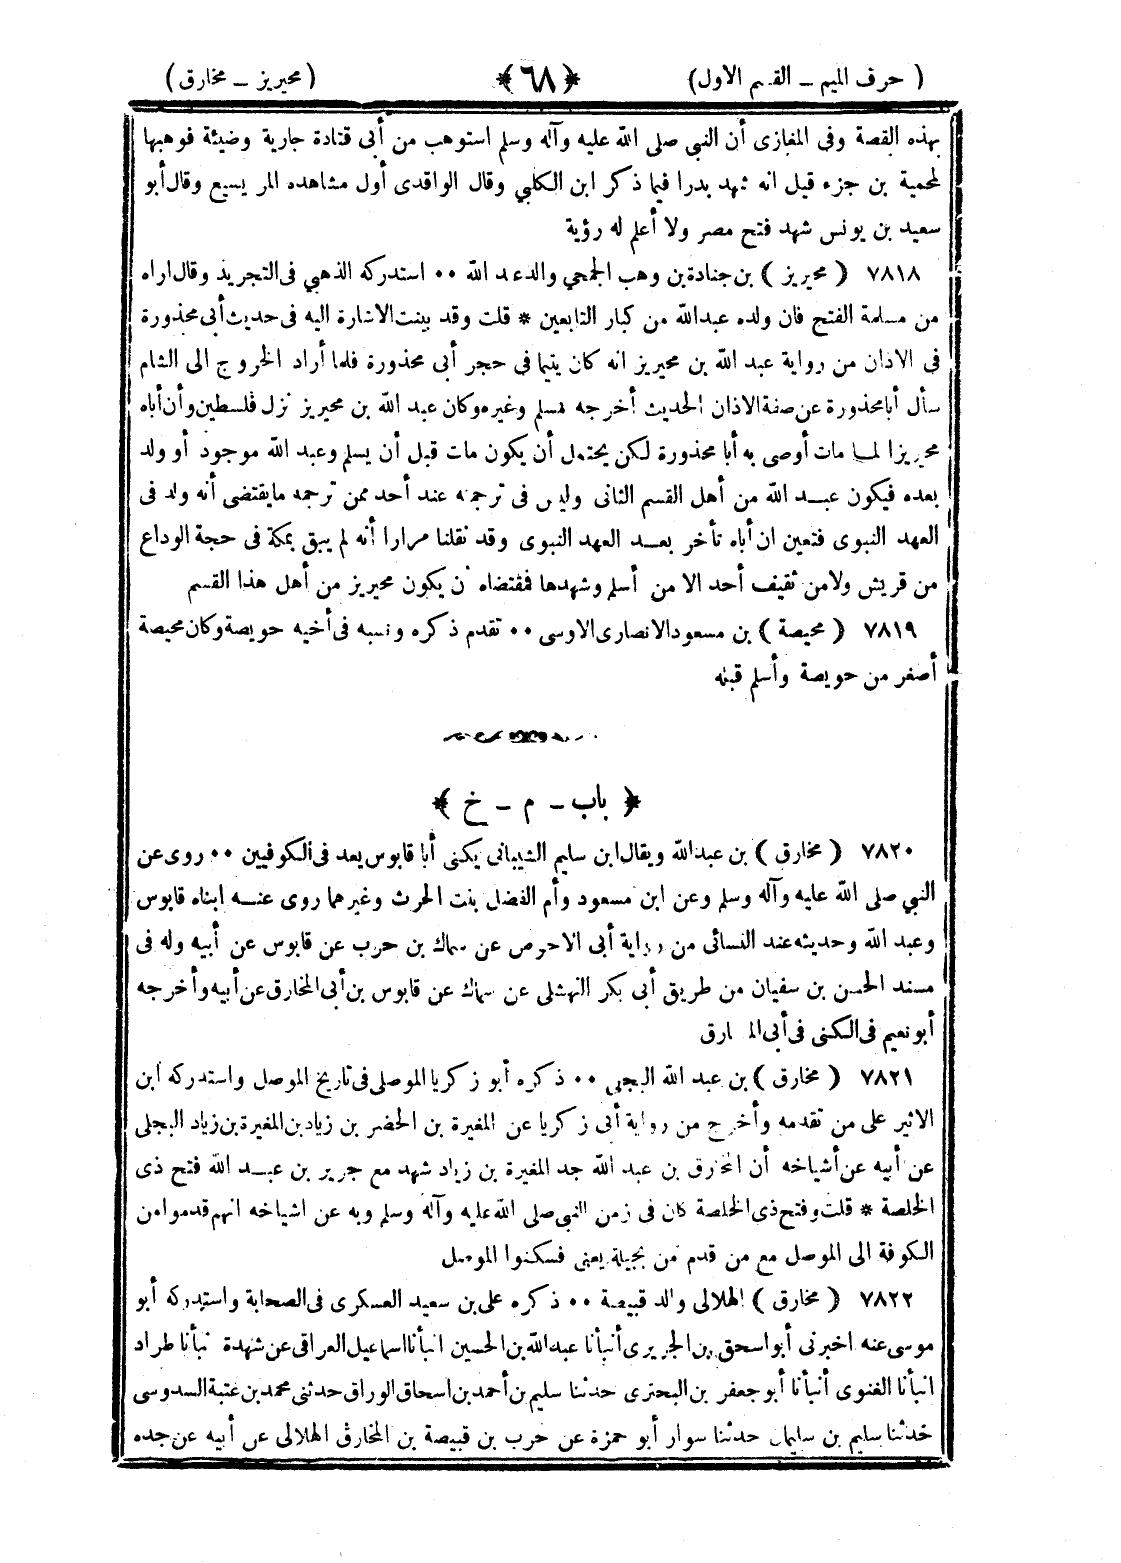 ( حرف الميم ــ القسم الاول) ﴿٦٨﴾ (محيريز ــ مخارق)
بهذه القصة وفى المغازى أن النبي صلى الله عليه وآله وسلم استوهب من أبى قتادة جارية وضيئة فوهبها
لمحمية بن جزء قيل انه شهد بدرا فيما ذكر ابن الكلبي وقال الواقدى أول مشاهده المريسيع وقال أبو
سعيد بن يونس شهد فتح مصر ولا أعلم له رؤية
٧٨١٨ ( محيريز ) بن جنادة بن وهب الجمحي والد عبد الله ٠٠ استدركه الذهبي فى التجريد وقال اراه
من مسلمة الفتح فان ولده عبدالله من كبار التابعين * قلت وقد بينت الاشارة اليه فى حديث أبى محذورة
فى الاذان من رواية عبد الله بن محيريز انه كان يتيما فى حجر أبى محذورة فلما أراد الخروج الى الشام
سأل أبا محذورة عن صفة الاذان الحديث أخرجه مسلم وغيره وكان عبد الله بن محيريز نزل فلسطين وأن أباه
محيريزا لمــا مات أوصى به أبا محذورة لكن يحتمل أن يكون مات قبل أن يسلم وعبد الله موجود أو ولد
بعده فيكون عبــد الله من أهل القسم الثانى وليس فى ترجمته عند أحد ممن ترجمه مايقتضى أنه ولد فى
العهد النبوى فتعين ان أباه تأخر بعــد العهد النبوى وقد نقلنا مرارا أنه لم يبق بمكة فى حجة الوداع
من قريش ولا من ثقيف أحد الا من أسلم وشهدها فمقتضاه أن يكون محيريز من أهل هذا القسم
٧٨١٩ ( محيصة ) بن مسعود الانصارى الاوسى ٠٠ تقدم ذكره ونسبه فى أخيه حويصة وكان محيصة
أصغر من حويصة وأسلم قبله
﴿ باب ــ م ــ خ ﴾
٧٨٢٠ ( مخارق ) بن عبدالله ويقال ابن سليم الشيبانى يكنى أبا قابوس يعد فى الكوفيين ٠٠ روى عن
النبي صلى الله عليه وآله وسلم وعن ابن مسعود وأم الفضل بنت الحرث وغيرهما روى عنــه ابناه قابوس
وعبد الله وحديثه عند النسائى من رواية أبى الاحوص عن سماك بن حرب عن قابوس عن أبيه وله فى
مسند الحسن بن سفيان من طريق أبى بكر النهشلى عن سماك عن قابوس بن أبى المخارق عن أبيه وأخرجه
أبو نعيم فى الكنى فى أبى المخارق
٧٨٢١ ( مخارق ) بن عبد الله البجلي ٠٠ ذكره أبو زكريا الموصلى فى تاريخ الموصل واستدركه ابن
الاثير على من تقدمه وأخرج من رواية أبى زكريا عن المغيرة بن الخضر بن زياد بن المغيرة بن زياد البجلى
عن أبيه عن أشياخه أن المخارق بن عبد الله جد المغيرة بن زياد شهد مع جرير بن عبــد الله فتح ذى
الخلصة * قلت وفتح ذى الخلصة كان فى زمن النبي صلى الله عليه وآله وسلم وبه عن اشياخه انهم قدموا من
الكوفة الى الموصل مع من قدم من بجيلة يعنى فسكنوا الموصل
٧٨٢٢ ( مخارق ) الهلالى والد قبيصة ٠٠ ذكره على بن سعيد العسكرى فى الصحابة واستدركه أبو
موسى عنه اخبرنى أبو اسحق بن الجريرى أنبأنا عبد الله بن الحسين انبأنا اسماعيل العراقى عن شهدة نبأنا طراد
انبأنا الغنوى أنبأنا أبو جعفر بن البحترى حدثنا سليم بن أحمد بن اسحاق الوراق حدثنى محمد بن عتبة السدوسى
حدثنا سليم بن سليمان حدثنا سوار أبو حمزة عن حرب بن قبيصة بن المخارق الهلالى عن أبيه عن جده